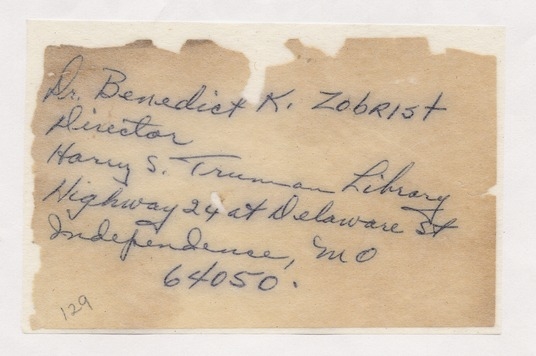 Dr. Benedict K. Zobrist
Director
Harry S. Truman Library
Highway 24 at Delaware St
Independence, MO
64050.
129